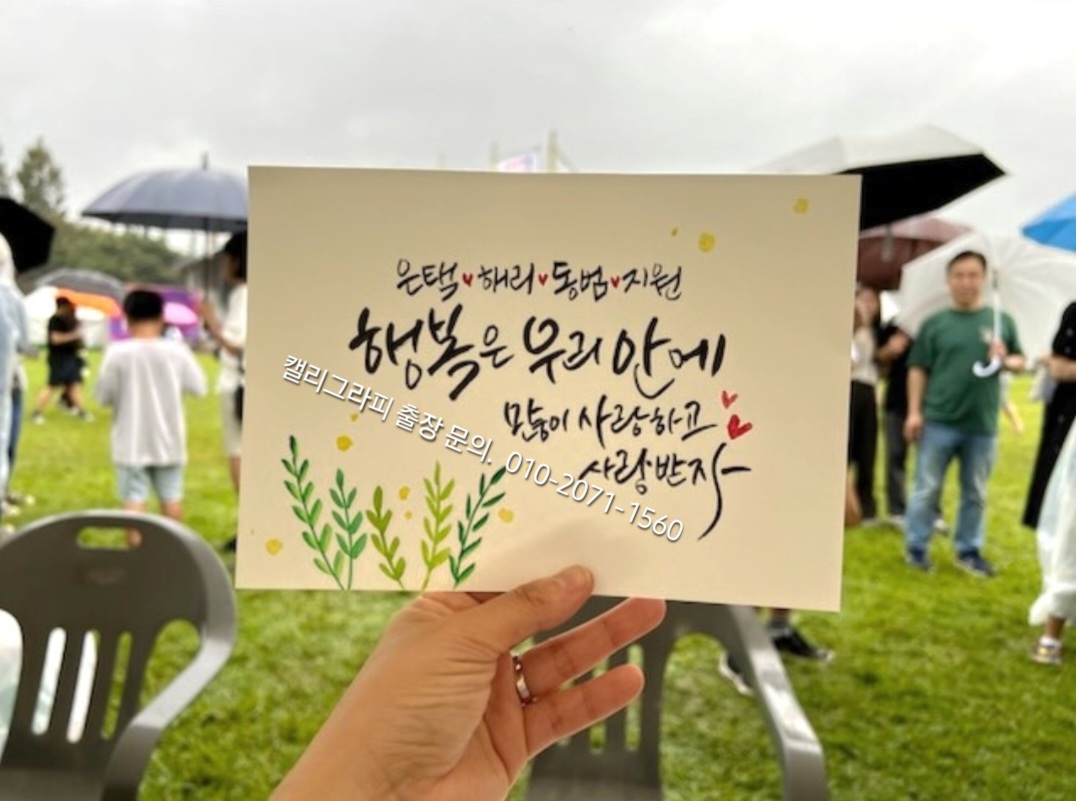 은택♥해리♥동범♥지원
행복은 우리 안에
많이 사랑하고
사랑받자
캘리그라피 출장 문의. 010-2071-1560